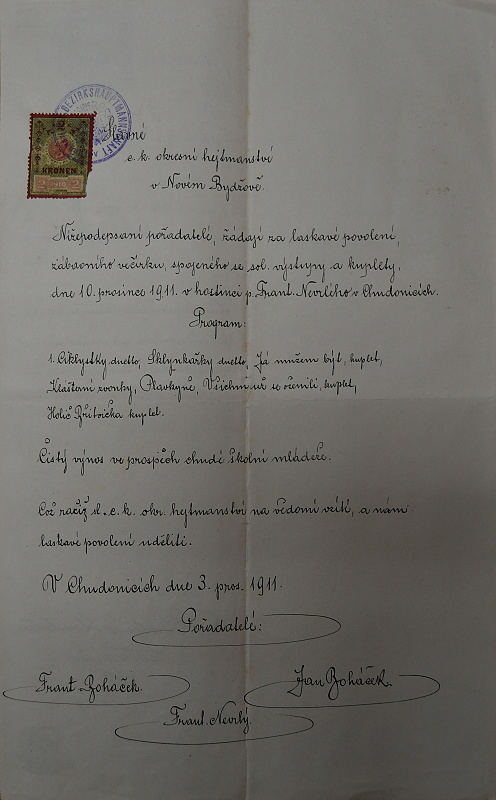 BEZIRKSHAUPTMANNSCHAFT
KRONEN
2 1910 2
Slavné
c. k. okresní hejtmanství
v Novém Bydžově.
Nížepodepsaní pořadatelé, žádají za laskavé povolení,
zábavního večírku, spojeného se sol. výstupy a kuplety,
dne 10. prosince 1911. v hostinci p. Frant. Nevrlého v Chudonicích.
Program:
1. Ciklystky duetto, Sklynkařky duetto, Já mužem být, kuplet,
Klášterní zvonky, Plavkyně, Všichni už se oženili, kuplet,
Holič Břitvička kuplet.
Čistý výnos ve prospěch chudé školní mládeže.
Což račiž sl. c. k. okr. hejtmanství na vědomí vzíti, a nám
laskavé povolení uděliti.
V Chudonicích dne 3. pros. 1911.
Pořadatelé:
Frant Boháček.
Jan Boháček.
Frant. Nevrlý.